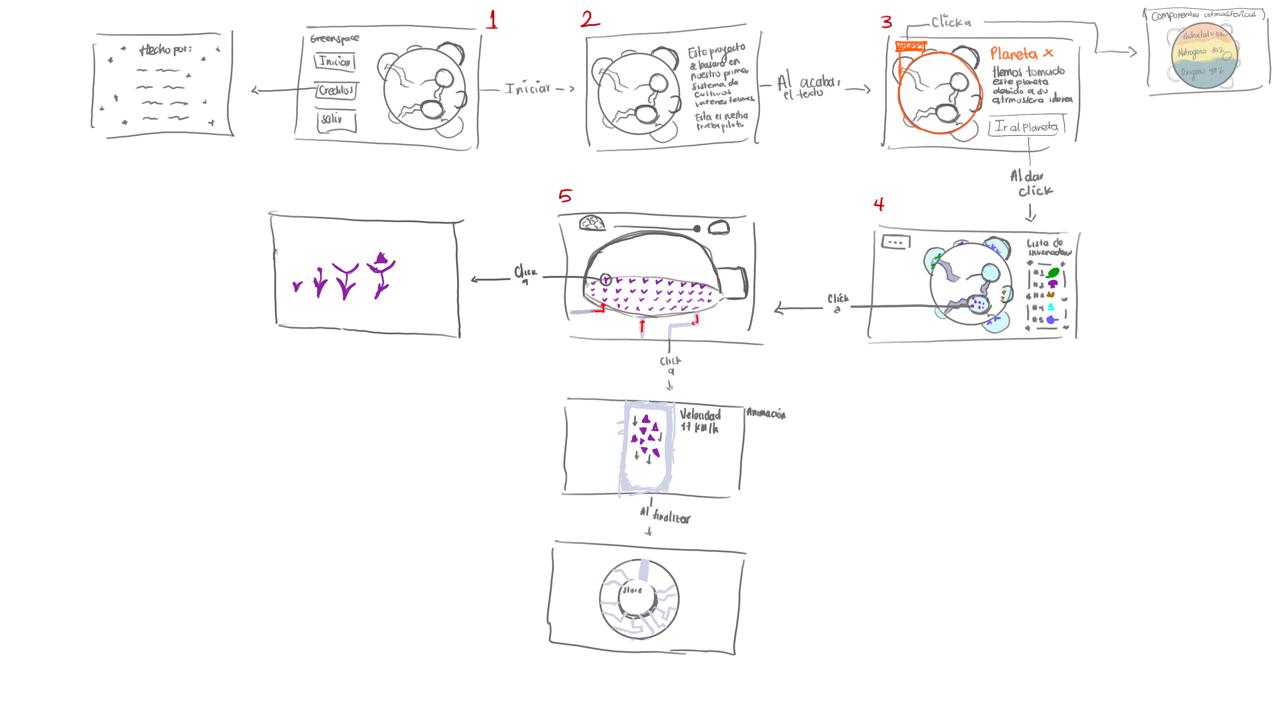 1
2
3
Hecho por:
Greenspace
Iniciar
Creditos
Salir
Iniciar
Este proyecto
se basara en
nuestro primer
sistema de
cultivos
interestelares.
Esta es nuestra
prueba piloto
Al acabar
el texto
Click a
Planeta x
Hemos tomado
este planeta
debido a su
atmosfera idonea
Ir al planeta
Componentes atmosfericos
Nitrogeno
Oxigeno
Al dar
click
4
5
Lista de
invernaderos
#1
#2
#3
#4
#5
Click
a
Click
a
Click
a
Velocidad
17 km/h
Animación
Al finalizar
Store